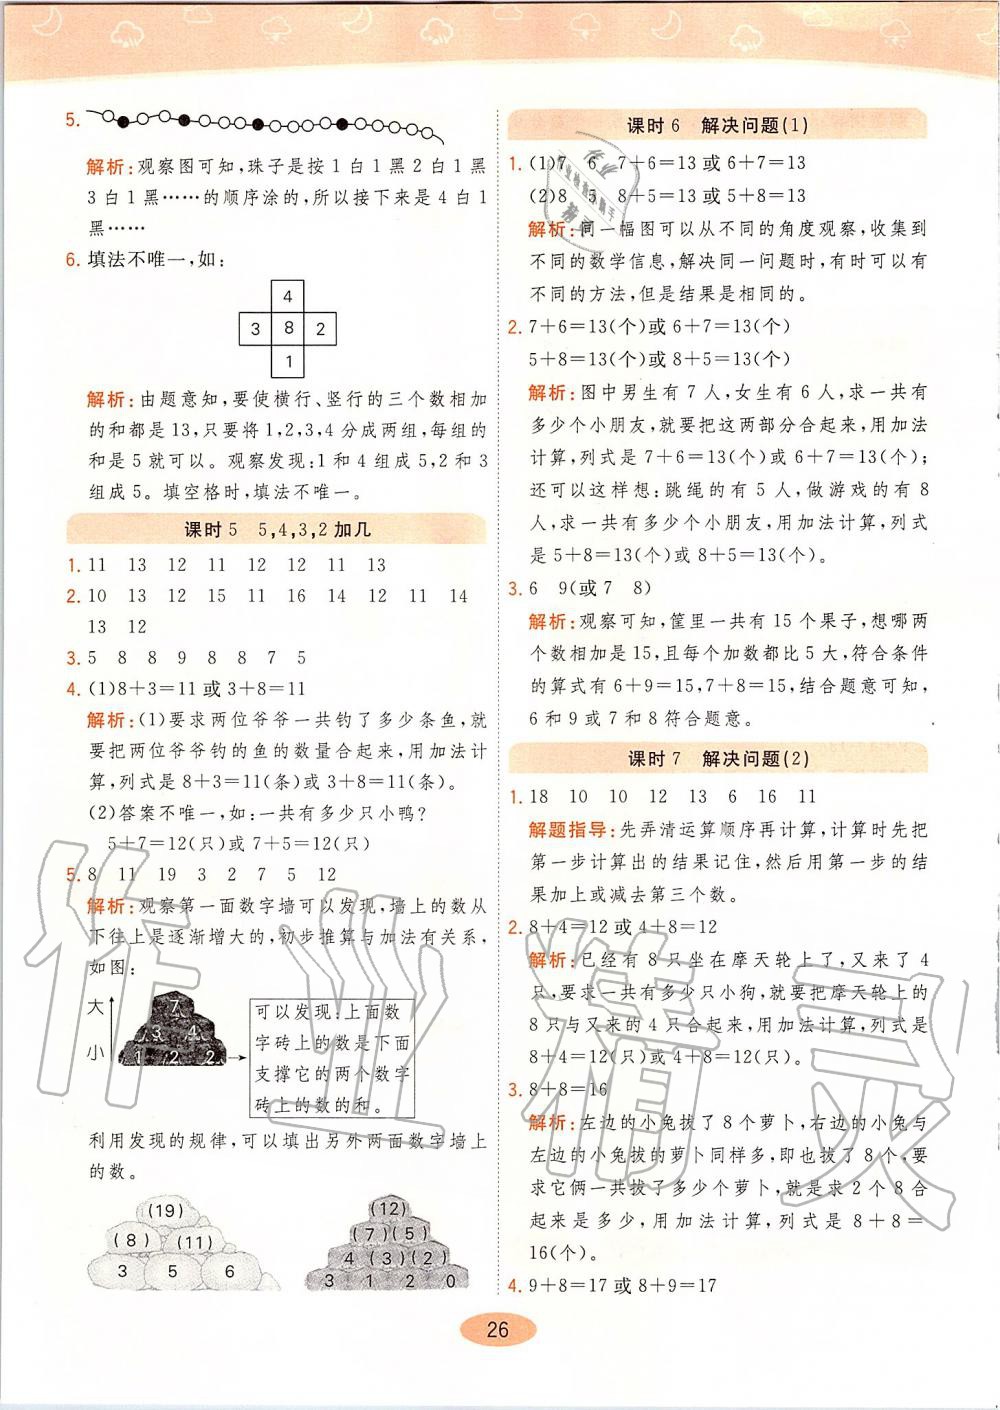 5.
解析:观察图可知,珠子是按1白1黑2白1黑
3白1黑……的顺序涂的,所以接下来是4白1
黑……
6. 填法不唯一,如:
4
3 8 2
1
解析:由题意知,要使横行、竖行的三个数相加
的和都是13,只要将1,2,3,4分成两组,每组的
和是5就可以。观察发现:1和4组成5,2和3
组成5。填空格时,填法不唯一。
课时5 5,4,3,2加几
1. 11 13 12 11 12 12 11 13
2. 10 13 12 15 11 16 14 12 11 14
13 12
3. 5 8 8 9 8 8 7 5
4. (1)8+3=11或3+8=11
解析:(1)要求两位爷爷一共钓了多少条鱼,就
要把两位爷爷钓的鱼的数量合起来,用加法计
算,列式是8+3=11(条)或3+8=11(条)。
(2)答案不唯一,如:一共有多少只小鸭?
5+7=12(只)或7+5=12(只)
5. 8 11 19 3 2 7 5 12
解析:观察第一面数字墙可以发现,墙上的数从
下往上是逐渐增大的,初步推算与加法有关系,
如图:
大
小
7
3 4
1 2 2
可以发现:上面数
字砖上的数是下面
支撑它的两个数字
砖上的数的和。
利用发现的规律,可以填出另外两面数字墙上
的数。
(19)
(8) (11)
3 5 6
(12)
(7)(5)
4 (3)(2)
3 1 2 0
课时6 解决问题(1)
1. (1)7 6 7+6=13或6+7=13
(2)8 5 8+5=13或5+8=13
解析:同一幅图可以从不同的角度观察,收集到
不同的数学信息,解决同一问题时,有时可以有
不同的方法,但是结果是相同的。
2. 7+6=13(个)或6+7=13(个)
5+8=13(个)或8+5=13(个)
解析:图中男生有7人,女生有6人,求一共有
多少个小朋友,就要把这两部分合起来,用加法
计算,列式是7+6=13(个)或6+7=13(个);
还可以这样想:跳绳的有5人,做游戏的有8
人,求一共有多少个小朋友,用加法计算,列式
是5+8=13(个)或8+5=13(个)。
3. 6 9(或7 8)
解析:观察可知,筐里一共有15个果子,想哪两
个数相加是15,且每个加数都比5大,符合条件
的算式有6+9=15,7+8=15,结合题意可知,
6和9或7和8符合题意。
课时7 解决问题(2)
1. 18 10 10 12 13 6 16 11
解题指导:先弄清运算顺序再计算,计算时先把
第一步计算出的结果记住,然后用第一步的结
果加上或减去第三个数。
2. 8+4=12或4+8=12
解析:已经有8只坐在摩天轮上了,又来了4
只,要求一共有多少只小狗,就要把摩天轮上的
8只与又来的4只合起来,用加法计算,列式是
8+4=12(只)或4+8=12(只)。
3. 8+8=16
解析:左边的小兔拔了8个萝卜,右边的小兔与
左边的小兔拔的萝卜同样多,即也拔了8个,要
求它俩一共拔了多少个萝卜,就是求2个8合
起来是多少,用加法计算,列式是8+8=
16(个)。
4. 9+8=17或8+9=17
26
作业精灵